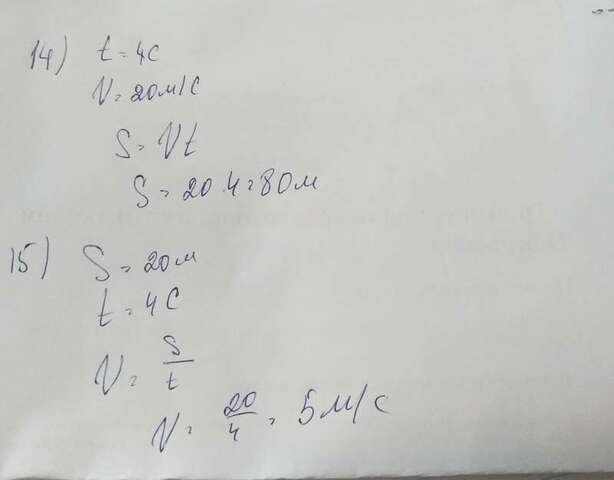 14) t = 4с
V = 20м/с
S = Vt
S = 20 · 4 = 80м
15) S = 20м
t = 4с
V = S/t
V = 20/4 = 5м/с